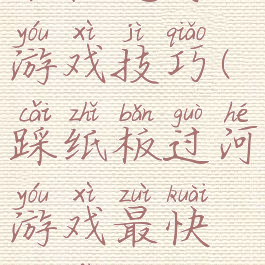 yóu xì jì qiǎo
游戏技巧(
cǎi zhǐ bǎn guò hé
踩纸板过河
yóu xì zuì kuài
游戏最快